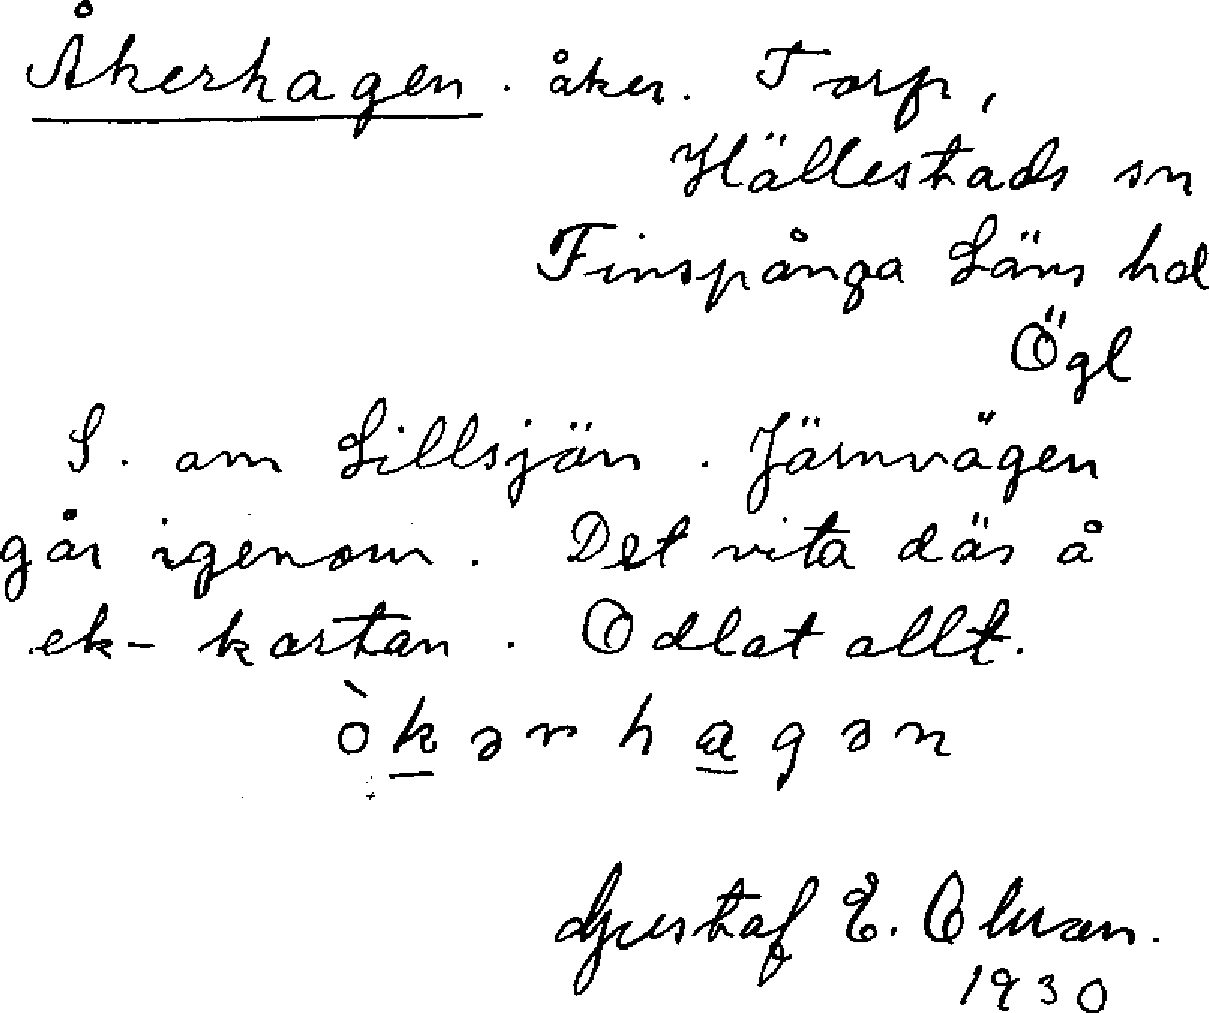 Åkerhagen. åker. Torp,
Hällestads sn
Finspånga Läns hd
Ögl
S. om Lillsjön. Järnvägen
går igenom. Det vita där å
ek-kartan. Odlat allt.
òkərhagən
Gustaf E. Olsson.
1930